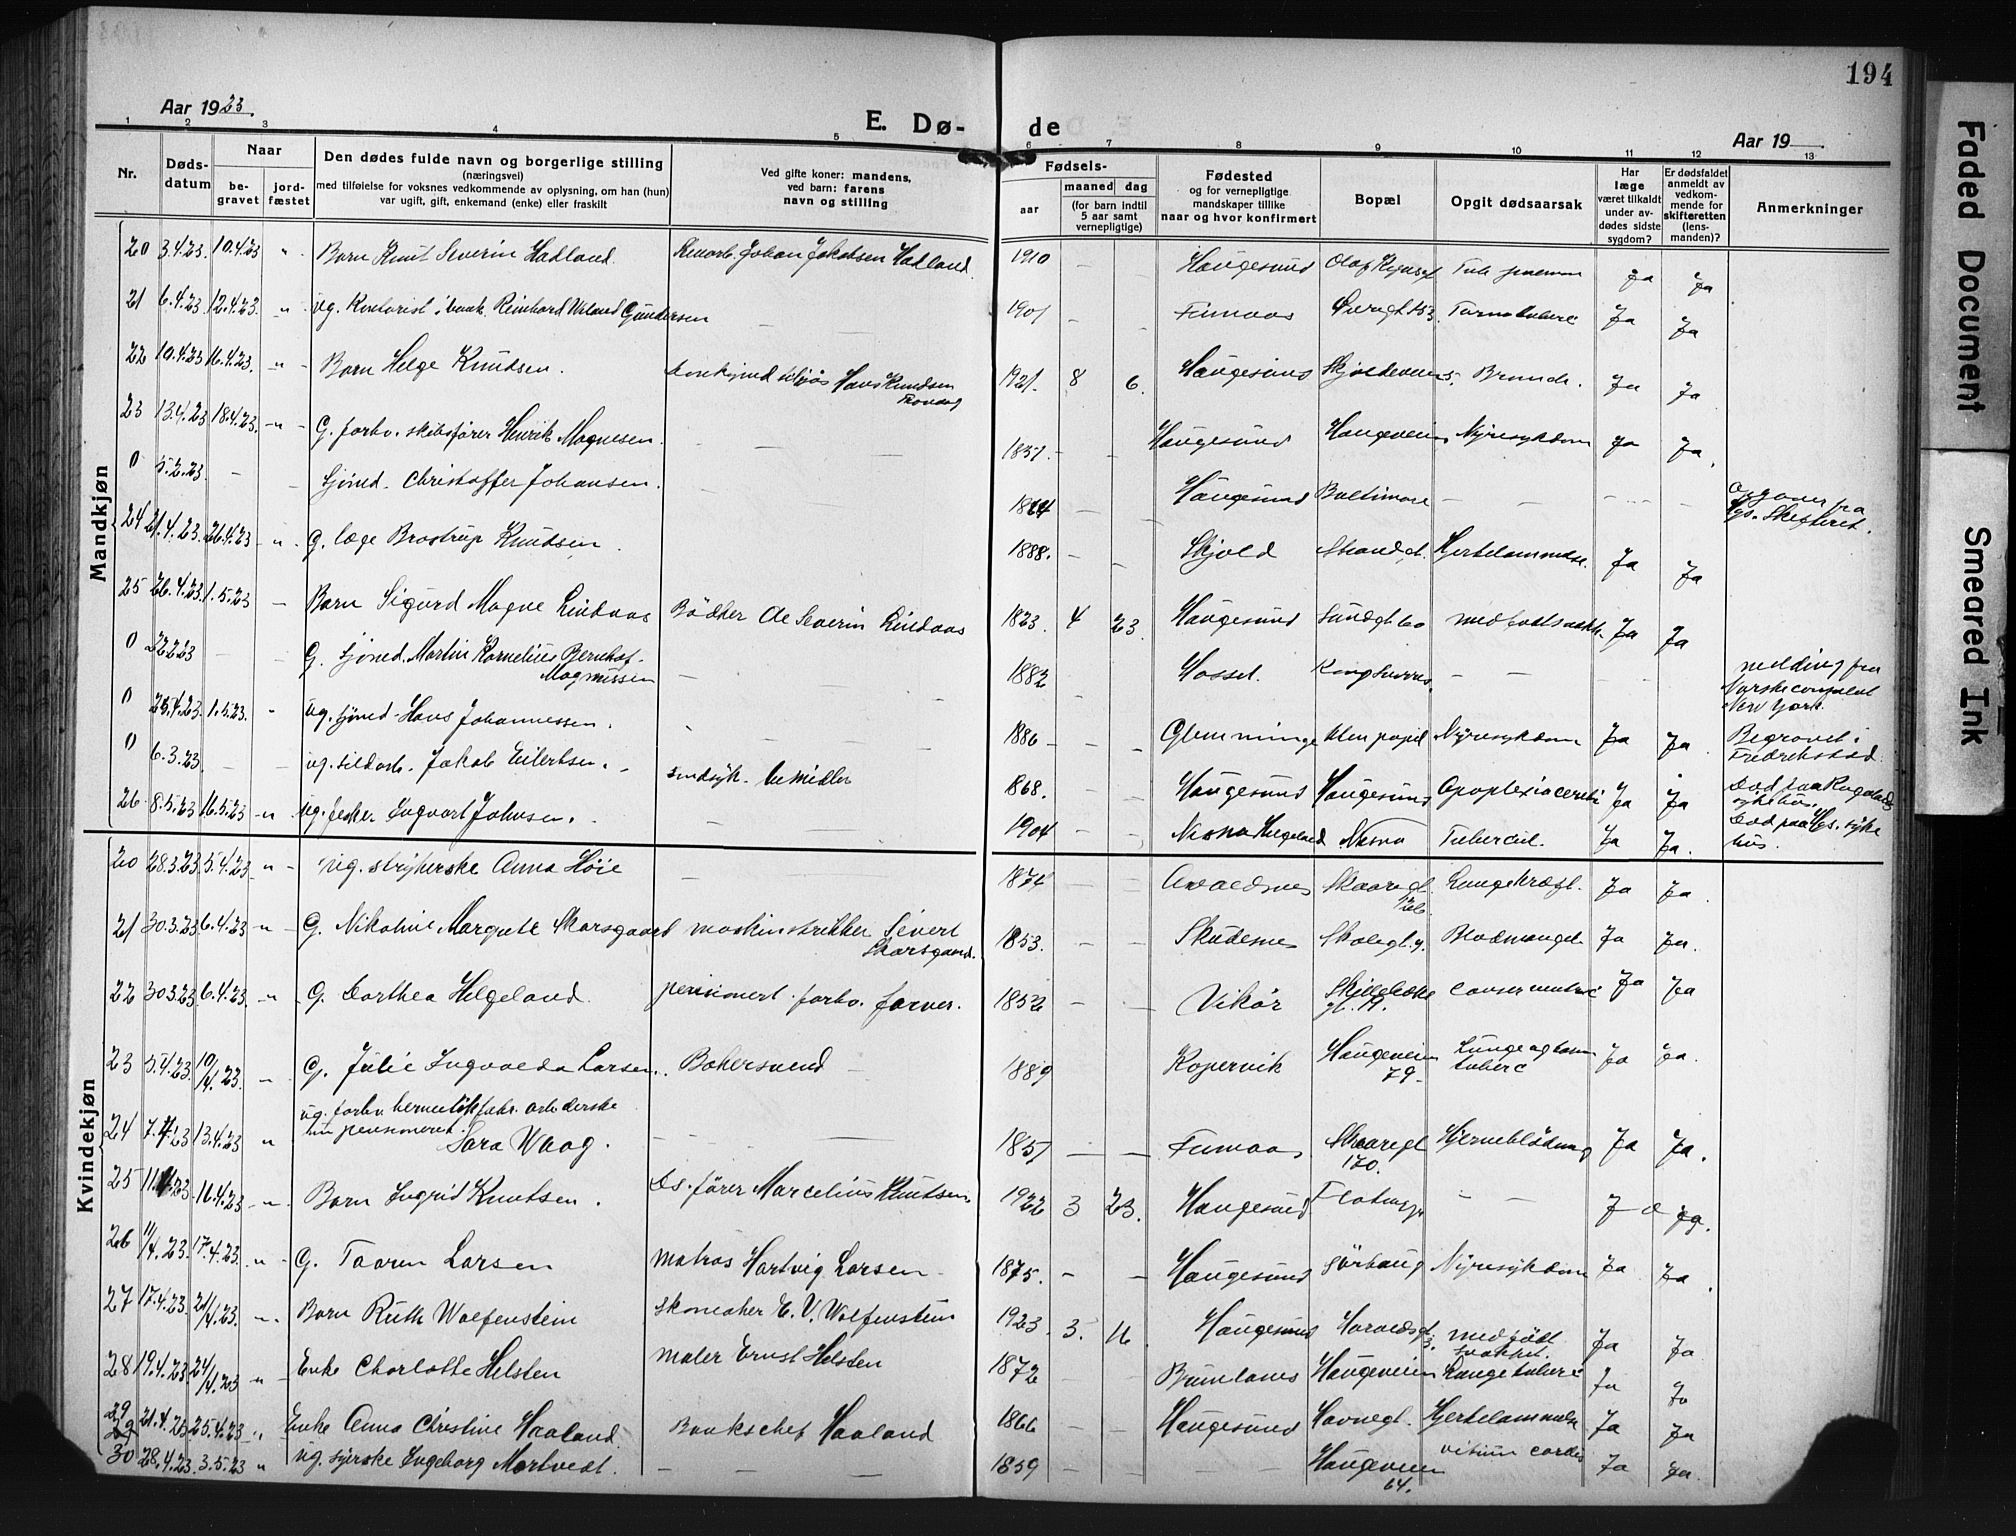 194
Aar 1923.
E. Dø-
de
Aar 19
1 2 3 4 5 6 7 8 9 10 11 12 13
Nr.
Døds-
datum
Naar
be-
gravet
jord-
fæstet
Den dødes fulde navn og borgerlige stilling
(næringsvei)
med tilføielse for voksnes vedkommende av oplysning, om han (hun)
var ugift, gift, enkemand (enke) eller fraskilt
Ved gifte koner: mandens,
ved barn: farens
navn og stilling
Fødsels-
aar
maaned
dag
(for barn indtil
5 aar samt
vernepligtige)
Fødested
og for vernepligtige
mandskaper tillike
naar og hvor konfirmert
Bopæl
Opgit dødsaarsak
Har
læge
været tilkaldt
under av-
dødes sidste
sygdom?
Er dødsfaldet
anmeldt av
vedkom-
mende for
skifteretten
(lens-
manden)?
Anmerkninger
Mandkjøn
20 3.4.23. 10.4.23 Barn Knut Severin Hadland. Johan Jakobsen Hadland 1910 Haugesund Ja Ja
21 6.4.23. 12.4.23. ug. Kontorist i bank Reinhard Gundersen 1901 Ja Ja
22 10.4.23 16.4.23. Barn Helge Knudsen. Hans Knudsen 1921. 8 6. Haugesund Skjoldeveien Ja Ja
23 13.4.23 18.4.23. G. forhv. skibsfører Henrik Magnesen. 1857. Haugesund Haugeveien Nyresykdom Ja Ja.
0 5.2.23 Sjömd. Christoffer Johansen. Haugesund Baltimore Opgaver fra
Hgs. Skifteret.
24 21.4.23. 26.4.23 G. læge Brostrup Knudsen. 1888. Skjold Strandgt. Ja Ja
25 26.4.23. 1.5.23 Barn Sigurd Magne Lindaas Bödker Ole Severin Lindaas 4 23. Haugesund Sundgt Ja Ja
0 22.2.23 G. sjömd. Martin Kornelius
Magnussen 1882 melding fra
Norske consulat
New York.
0 25.4.23. 1.5.23. ug. sjömd. Hans Johannessen. 1886 Glemminge Nyresykdom Ja Ja Begravet i
Fredrikstad.
0 6.3.23. ug. sildarb. Jakob Eilertsen. sindsyk. bemidler 1868. Haugesund Haugesund Ja Ja Död paa Rogalands
sykehus.
26 8.5.23 16.5.23 ug. fisker Ingvart Johnsen. 1904 Nesna Helgeland Nesna Tubercul. Ja Ja. Död paa Hgs. syke
hus.
Kvindekjøn
20 28.3.23 5.4.23 ug. strykerske Anna Höie 1874 Avaldsnes Skaaregt Lungekræft. Ja Ja.
21 30.3.23 6.4.23 G. Nikoline Margrete Skarsgaard maskinstrikker Sivert
Skarsgaard. 1853. Skudesnes Skolegt. 9. Blodmangel Ja Ja.
22 30.3.23 6.4.23. G. Dorthea Helgeland. pensionert forhv. farver. 1852 Vikör Ja Ja
23 5.4.23. 10/4.23. G. Julie Ingvalda Larsen. Bakersvend 1889 Kopervik Haugeveien
79. Lunge og tarm
tuberc Ja Ja.
24 7.4.23 13.4.23 ug. forhv. hermetikfabr. arbederske
nu pensioneret
Sara Waag. 1857 Skaaregt
170. Hjerneblödning Ja Ja.
25 11.4.23 16.4.23 Barn Ingrid Knutsen. Ds. förer Marcelius Knutsen. 1922 3 23. Haugesund Ja Ja.
26 11/4.23. 17.4.23. G. Taaren Larsen Matros Hartvig Larsen 1875. Haugesund Sörhaug Nyresykdom Ja Ja.
27 17.4.23. 21/4.23. Barn Ruth Wolfenstein Skomaker E. V. Wolfenstein 1923. 3. 16. Haugesund Haraldsgt. medfödt
svakhet. Ja Ja
28 19.4.23 24/4.23 Enke Charlotte Helsten maler Ernst Helsten 1872 Haugeveien Lungetuberc Ja Ja
29 21.4.23 25.4.23 Enke Anna Christine Haaland. Bankchef Haaland 1866 Haugesund Havnegt. Hjertelammelse Ja Ja
30 28.4.23. 3.5.23 ug. syerske Ingeborg Mortvedt. 1859 Haugeveien
64. vitium cordis Ja Ja.
Faded Document
Smeared Ink